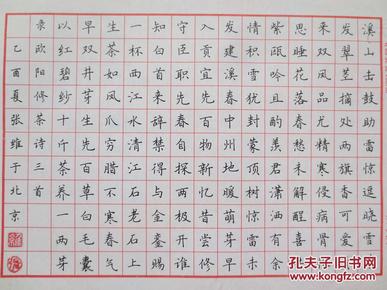 溪山击鼓助雷惊逗晓灵芽
发翠茎摘处两旗香可爱贡
来双凤品尤精寒侵病骨惟
思睡花落春愁未解醒喜共
紫瓯吟且酌羡君潇洒有余
情积雪犹封蒙顶树惊雷未
发建溪春中州地暖萌芽早
入贡宜先百物新忆昔尝修
守臣职先春自探两旗开谁
知白首来辞禁得与金銮赐
一杯西江水清江石老石上
生茶如凤爪穷腊不寒春气
早双井芽生先百草白毛囊
以红碧纱十斤茶养一两芽
录欧阳修茶诗三首
乙酉夏张维于北京
孔夫子旧书网